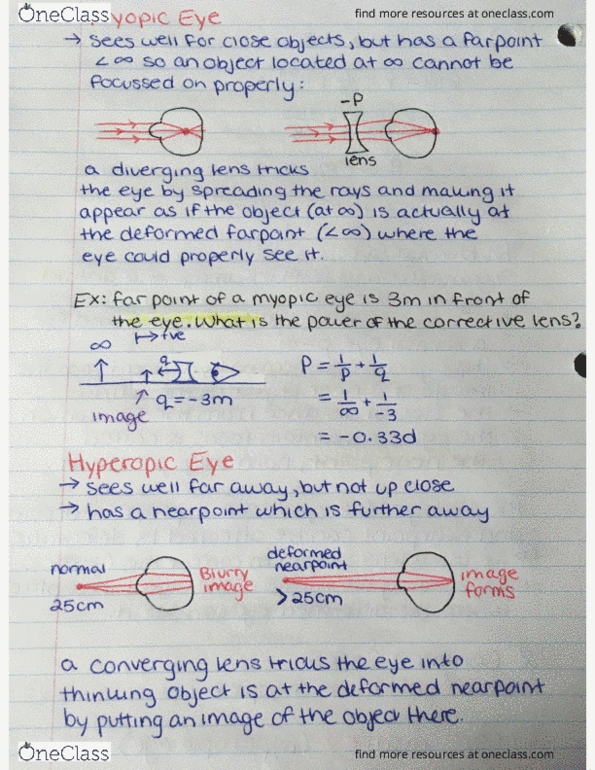 OneClass
find more resources at oneclass.com
Myopic Eye
→ sees well for close objects, but has a farpoint
<∞ so an object located at ∞ cannot be
focussed on properly:
-P
lens
a diverging lens tricks
the eye by spreading the rays and making it
appear as if the object (at ∞) is actually at
the deformed farpoint (<∞) where the
eye could properly see it.
Ex: far point of a myopic eye is 3m in front of
the eye. What is the power of the corrective lens?
∞
↦+ve
q
q = -3m
image
P = 1/p + 1/q
= 1/∞ + 1/-3
= -0.33d
Hyperopic Eye
→ sees well far away, but not up close
→ has a nearpoint which is further away
normal
25cm
Blurry
image
deformed
nearpoint
>25cm
image
forms
a converging lens tricks the eye into
thinking object is at the deformed nearpoint
by putting an image of the object there.
OneClass
find more resources at oneclass.com